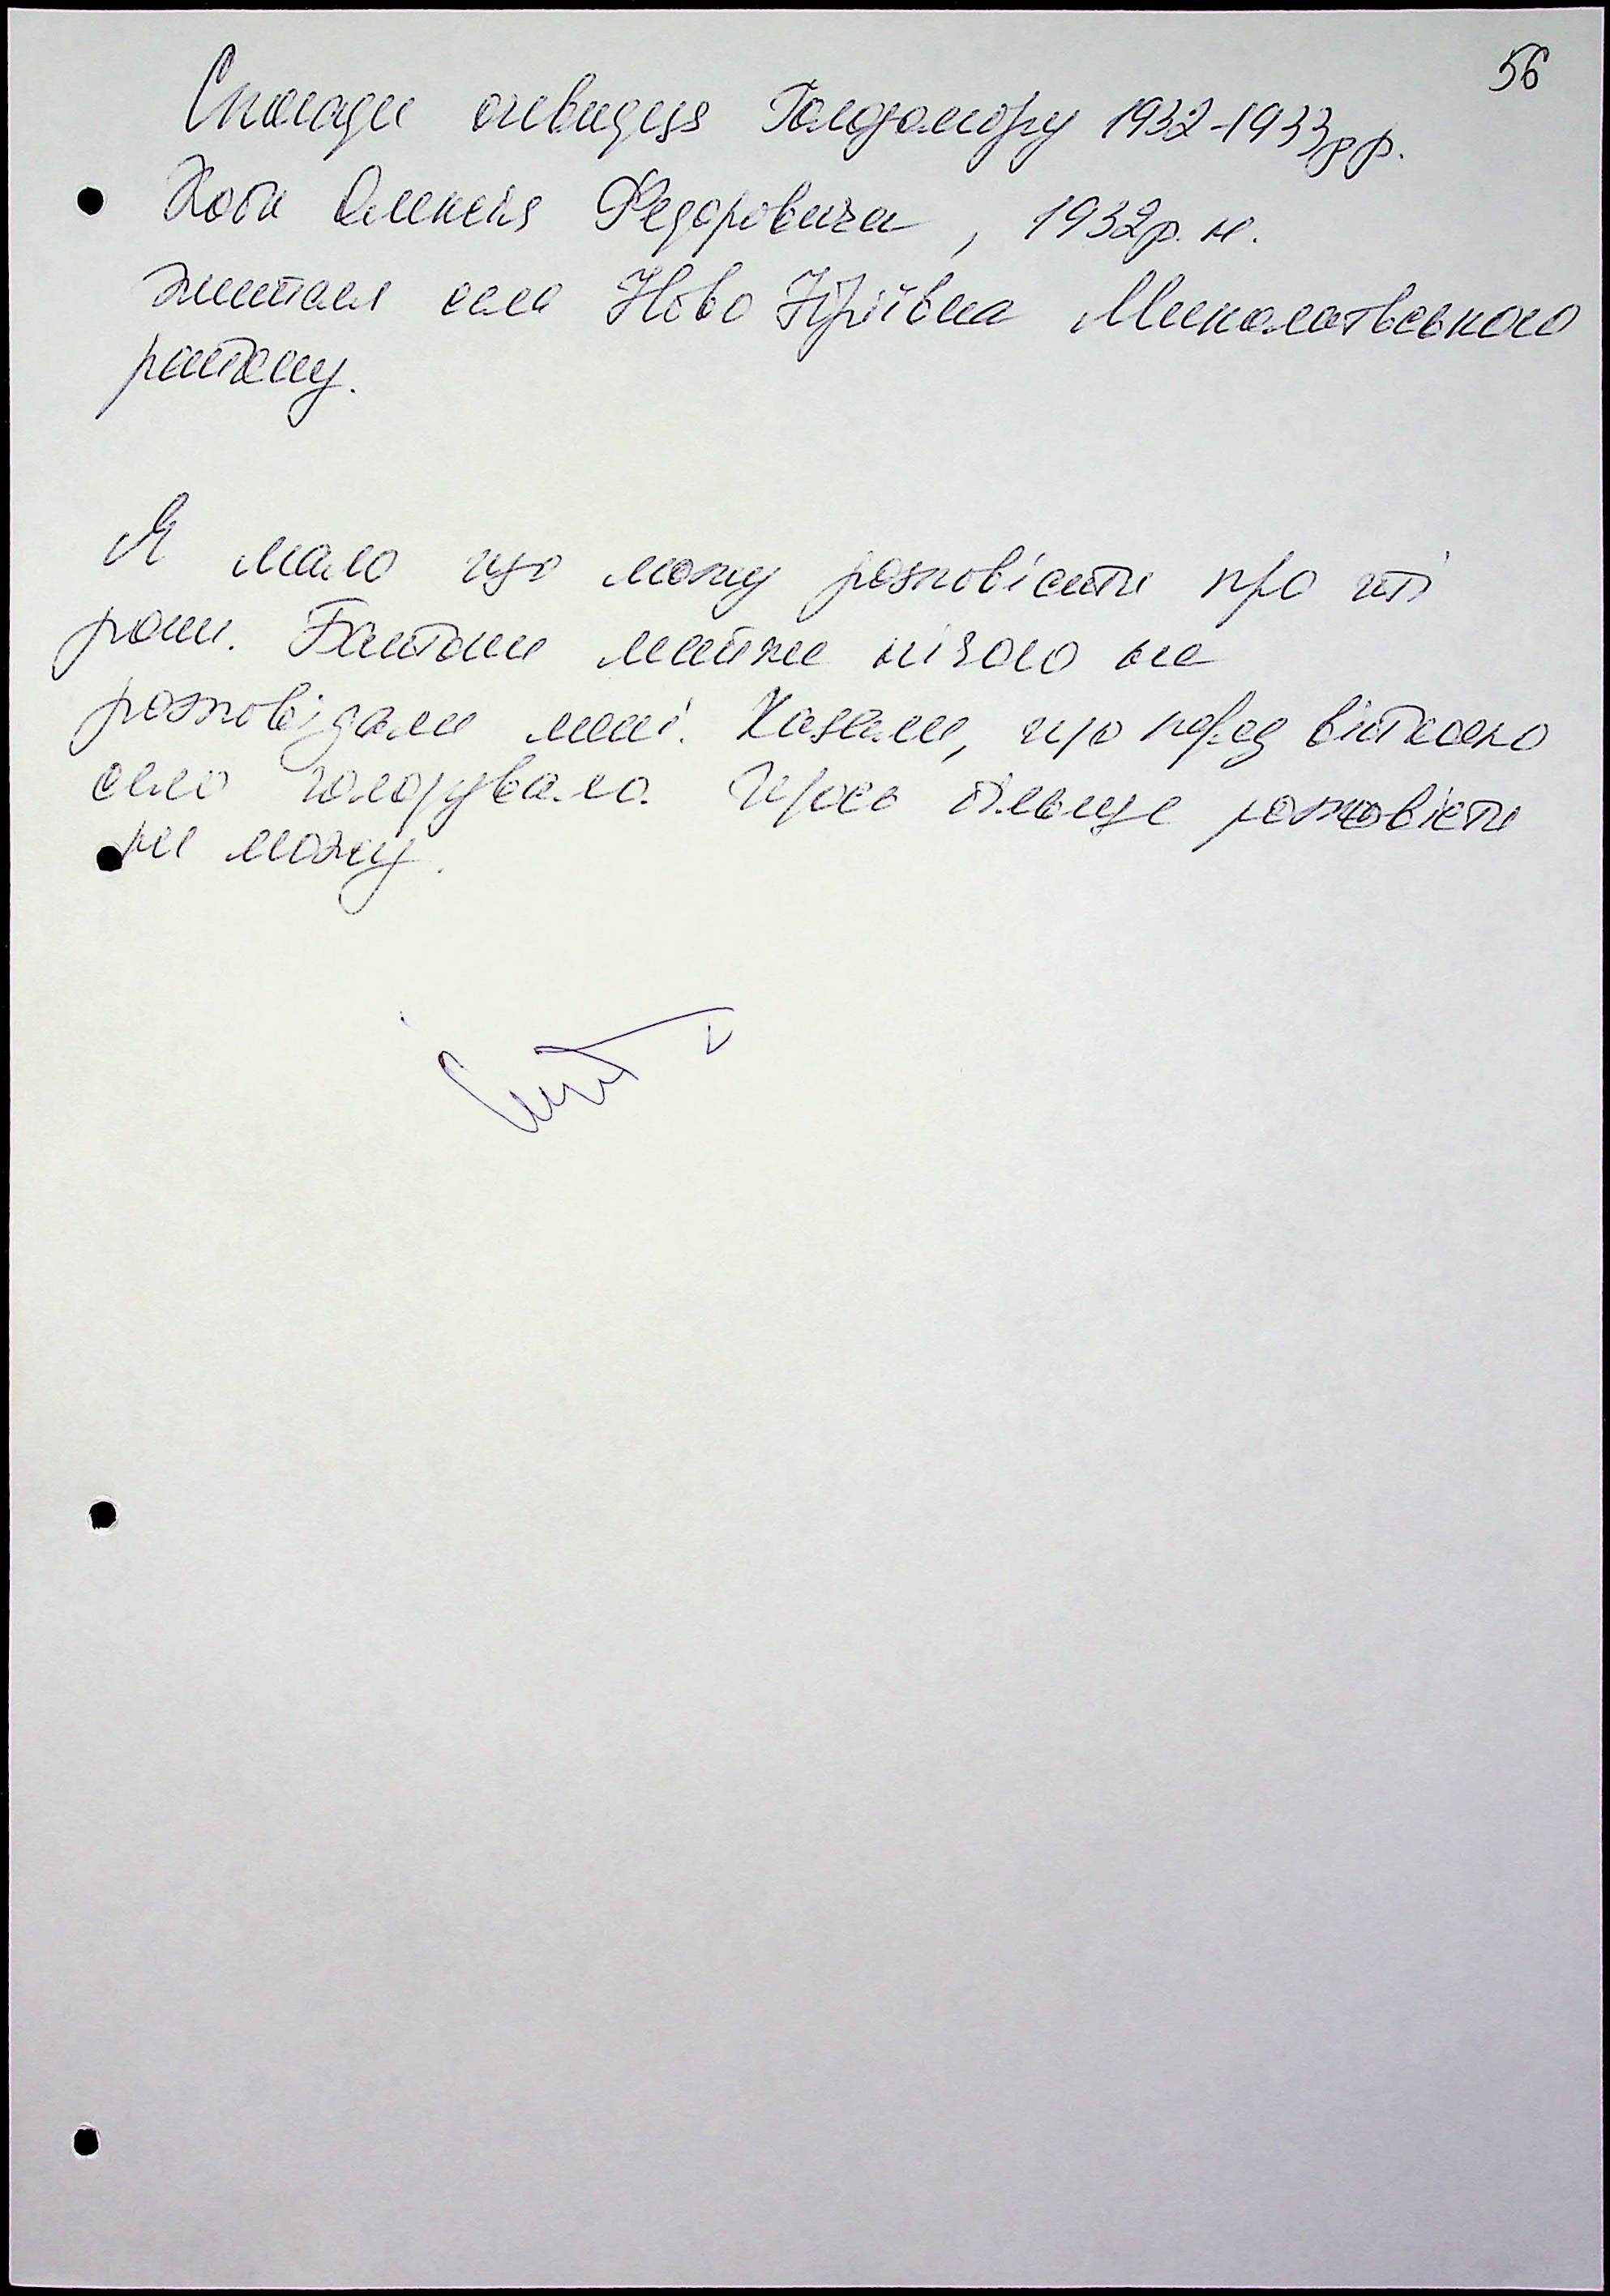 56
Спогади очевидця Голодомору 1932-1933рр.
Федоровича, 1932р. н.
жителя села Ново Юріївка Миколаївського
району.
Я мало що можу розповісти про ті
роки. Батьки майже нічого не
розповідали мені. Казали, що перед війною
село голодувало. Щось більше розповісти
не можу.